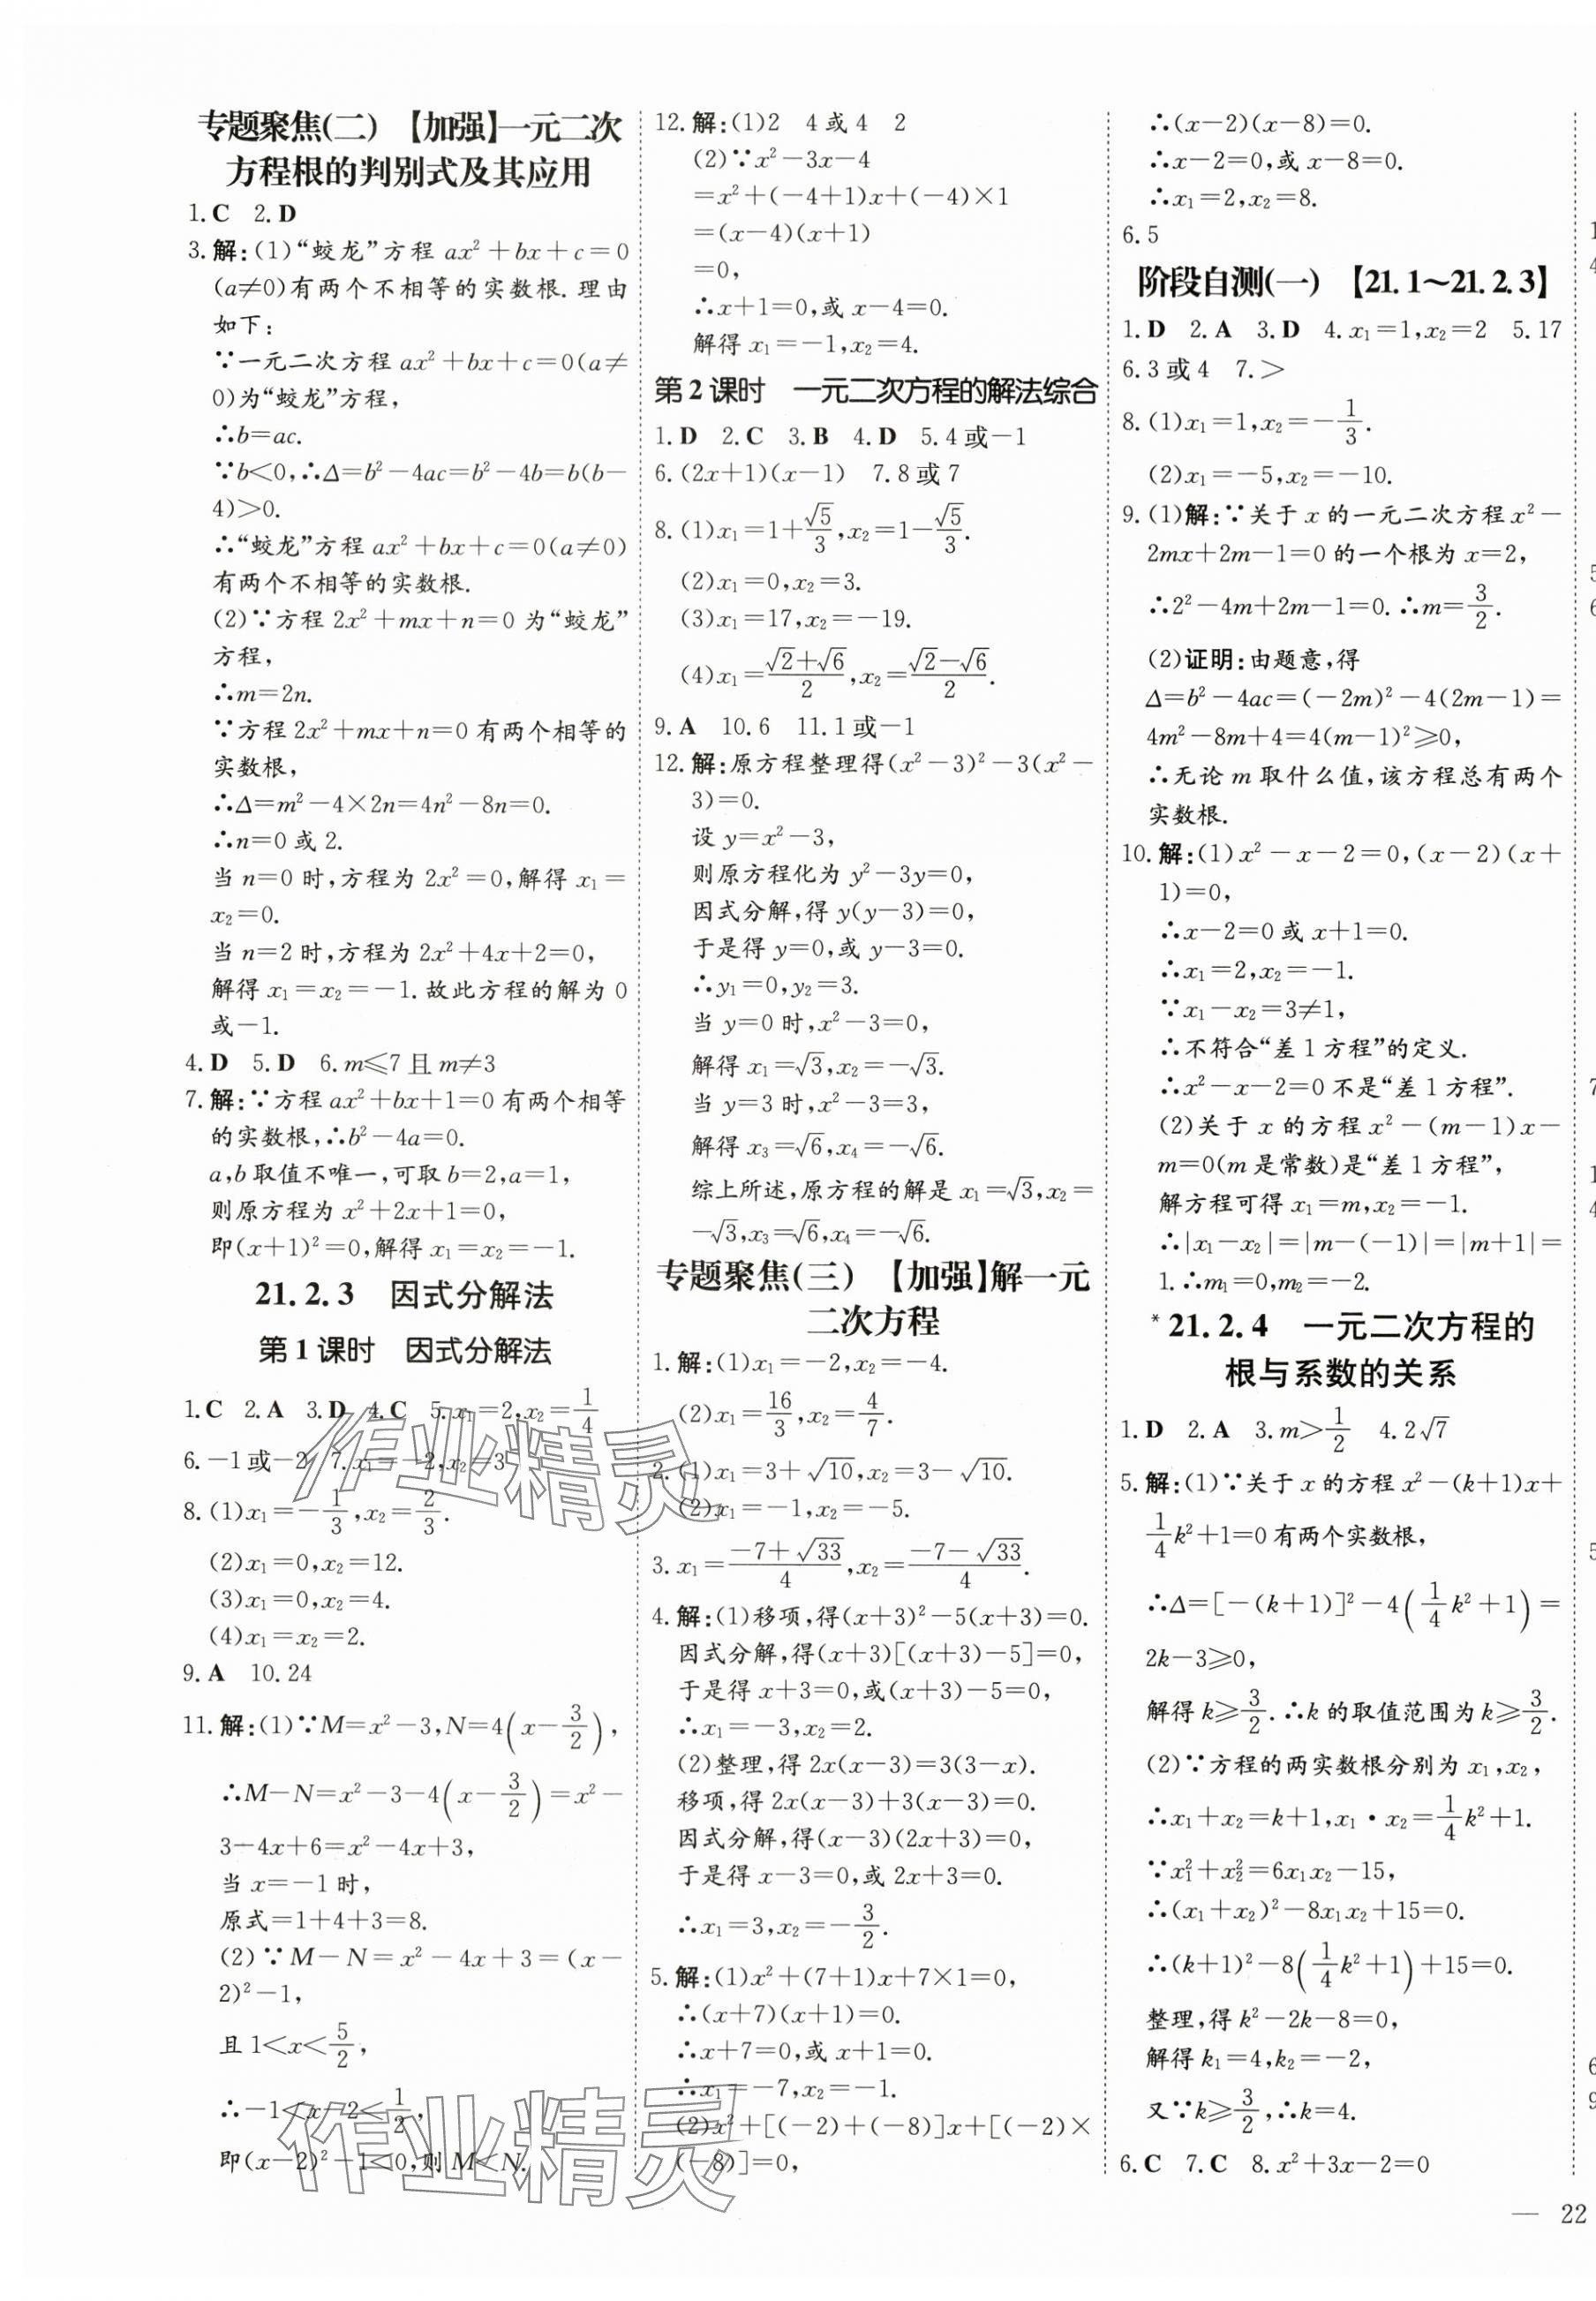 专题聚焦(二) 【加强】一元二次
方程根的判别式及其应用
1.C 2.D
3.解:(1)“蛟龙”方程 ax²+bx+c=0
(a≠0)有两个不相等的实数根.理由
如下:
∵一元二次方程 ax²+bx+c=0(a≠
0)为“蛟龙”方程,
∴b=ac.
∵b<0,∴Δ=b²-4ac=b²-4b=b(b-
4)>0.
∴“蛟龙”方程 ax²+bx+c=0(a≠0)
有两个不相等的实数根.
(2)∵方程 2x²+mx+n=0 为“蛟龙”
方程,
∴m=2n.
∵方程 2x²+mx+n=0 有两个相等的
实数根,
∴Δ=m²-4×2n=4n²-8n=0.
∴n=0 或 2.
当 n=0 时,方程为 2x²=0,解得 x₁=
x₂=0.
当 n=2 时,方程为 2x²+4x+2=0,
解得 x₁=x₂=-1.故此方程的解为 0
或-1.
4.D 5.D 6.m≤7 且 m≠3
7.解:∵方程 ax²+bx+1=0 有两个相等
的实数根,∴b²-4a=0.
a,b 取值不唯一,可取 b=2,a=1,
则原方程为 x²+2x+1=0,
即(x+1)²=0,解得 x₁=x₂=-1.
21.2.3 因式分解法
第1课时 因式分解法
1.C 2.A 3.D 4.C 5.x₁=2,x₂=1/4
6.-1或-2 7.x₁=-2,x₂=3
8.(1)x₁=-1/3,x₂=2/3.
(2)x₁=0,x₂=12.
(3)x₁=0,x₂=4.
(4)x₁=x₂=2.
9.A 10.24
11.解:(1)∵M=x²-3,N=4(x-3/2),
∴M-N=x²-3-4(x-3/2)=x²-
3-4x+6=x²-4x+3,
当 x=-1 时,
原式=1+4+3=8.
(2)∵M-N=x²-4x+3=(x-
2)²-1,
且 1<x<5/2,
∴-1<x-2<1/2,
即(x-2)²-1<0,则 M<N.
12.解:(1)2 4 或 4 2
(2)∵x²-3x-4
=x²+(-4+1)x+(-4)×1
=(x-4)(x+1)
=0,
∴x+1=0,或 x-4=0.
解得 x₁=-1,x₂=4.
第2课时 一元二次方程的解法综合
1.D 2.C 3.B 4.D 5.4 或-1
6.(2x+1)(x-1) 7.8 或 7
8.(1)x₁=1+√5/3,x₂=1-√5/3.
(2)x₁=0,x₂=3.
(3)x₁=17,x₂=-19.
(4)x₁=(√2+√6)/2,x₂=(√2-√6)/2.
9.A 10.6 11.1 或-1
12.解:原方程整理得(x²-3)²-3(x²-
3)=0.
设 y=x²-3,
则原方程化为 y²-3y=0,
因式分解,得 y(y-3)=0,
于是得 y=0,或 y-3=0.
∴y₁=0,y₂=3.
当 y=0 时,x²-3=0,
解得 x₁=√3,x₂=-√3.
当 y=3 时,x²-3=3,
解得 x₃=√6,x₄=-√6.
综上所述,原方程的解是 x₁=√3,x₂=
-√3,x₃=√6,x₄=-√6.
专题聚焦(三) 【加强】解一元
二次方程
1.解:(1)x₁=-2,x₂=-4.
(2)x₁=16/3,x₂=4/7.
2.(1)x₁=3+√10,x₂=3-√10.
(2)x₁=-1,x₂=-5.
3.x₁=(-7+√33)/4,x₂=(-7-√33)/4.
4.解:(1)移项,得(x+3)²-5(x+3)=0.
因式分解,得(x+3)[(x+3)-5]=0,
于是得 x+3=0,或(x+3)-5=0,
∴x₁=-3,x₂=2.
(2)整理,得 2x(x-3)=3(3-x).
移项,得 2x(x-3)+3(x-3)=0.
因式分解,得(x-3)(2x+3)=0,
于是得 x-3=0,或 2x+3=0.
∴x₁=3,x₂=-3/2.
5.解:(1)x²+(7+1)x+7×1=0,
∴(x+7)(x+1)=0.
∴x+7=0,或 x+1=0.
∴x₁=-7,x₂=-1.
(2)x²+[(-2)+(-8)]x+[(-2)×
(-8)]=0,
∴(x-2)(x-8)=0.
∴x-2=0,或 x-8=0.
∴x₁=2,x₂=8.
6.5
阶段自测(一) 【21.1~21.2.3】
1.D 2.A 3.D 4.x₁=1,x₂=2 5.17
6.3 或 4 7.>
8.(1)x₁=1,x₂=-1/3.
(2)x₁=-5,x₂=-10.
9.(1)解:∵关于 x 的一元二次方程 x²-
2mx+2m-1=0 的一个根为 x=2,
∴2²-4m+2m-1=0.∴m=3/2.
(2)证明:由题意,得
Δ=b²-4ac=(-2m)²-4(2m-1)=
4m²-8m+4=4(m-1)²≥0,
∴无论 m 取什么值,该方程总有两个
实数根.
10.解:(1)x²-x-2=0,(x-2)(x+
1)=0,
∴x-2=0 或 x+1=0.
∴x₁=2,x₂=-1.
∵x₁-x₂=3≠1,
∴不符合“差1方程”的定义.
∴x²-x-2=0 不是“差1方程”.
(2)关于 x 的方程 x²-(m-1)x-
m=0(m 是常数)是“差1方程”,
解方程可得 x₁=m,x₂=-1.
∴|x₁-x₂|=|m-(-1)|=|m+1|=
1.∴m₁=0,m₂=-2.
*21.2.4 一元二次方程的
根与系数的关系
1.D 2.A 3.m>1/2 4.2√7
5.解:(1)∵关于 x 的方程 x²-(k+1)x+
1/4k²+1=0 有两个实数根,
∴Δ=[-(k+1)]²-4(1/4k²+1)=
2k-3≥0,
解得 k≥3/2.∴k 的取值范围为 k≥3/2.
(2)∵方程的两实数根分别为 x₁,x₂,
∴x₁+x₂=k+1,x₁·x₂=1/4k²+1.
∵x₁²+x₂²=6x₁x₂-15,
∴(x₁+x₂)²-8x₁x₂+15=0.
∴(k+1)²-8(1/4k²+1)+15=0.
整理,得 k²-2k-8=0,
解得 k₁=4,k₂=-2,
又∵k≥3/2,∴k=4.
6.C 7.C 8.x²+3x-2=0
— 22
作业精灵
作业精灵